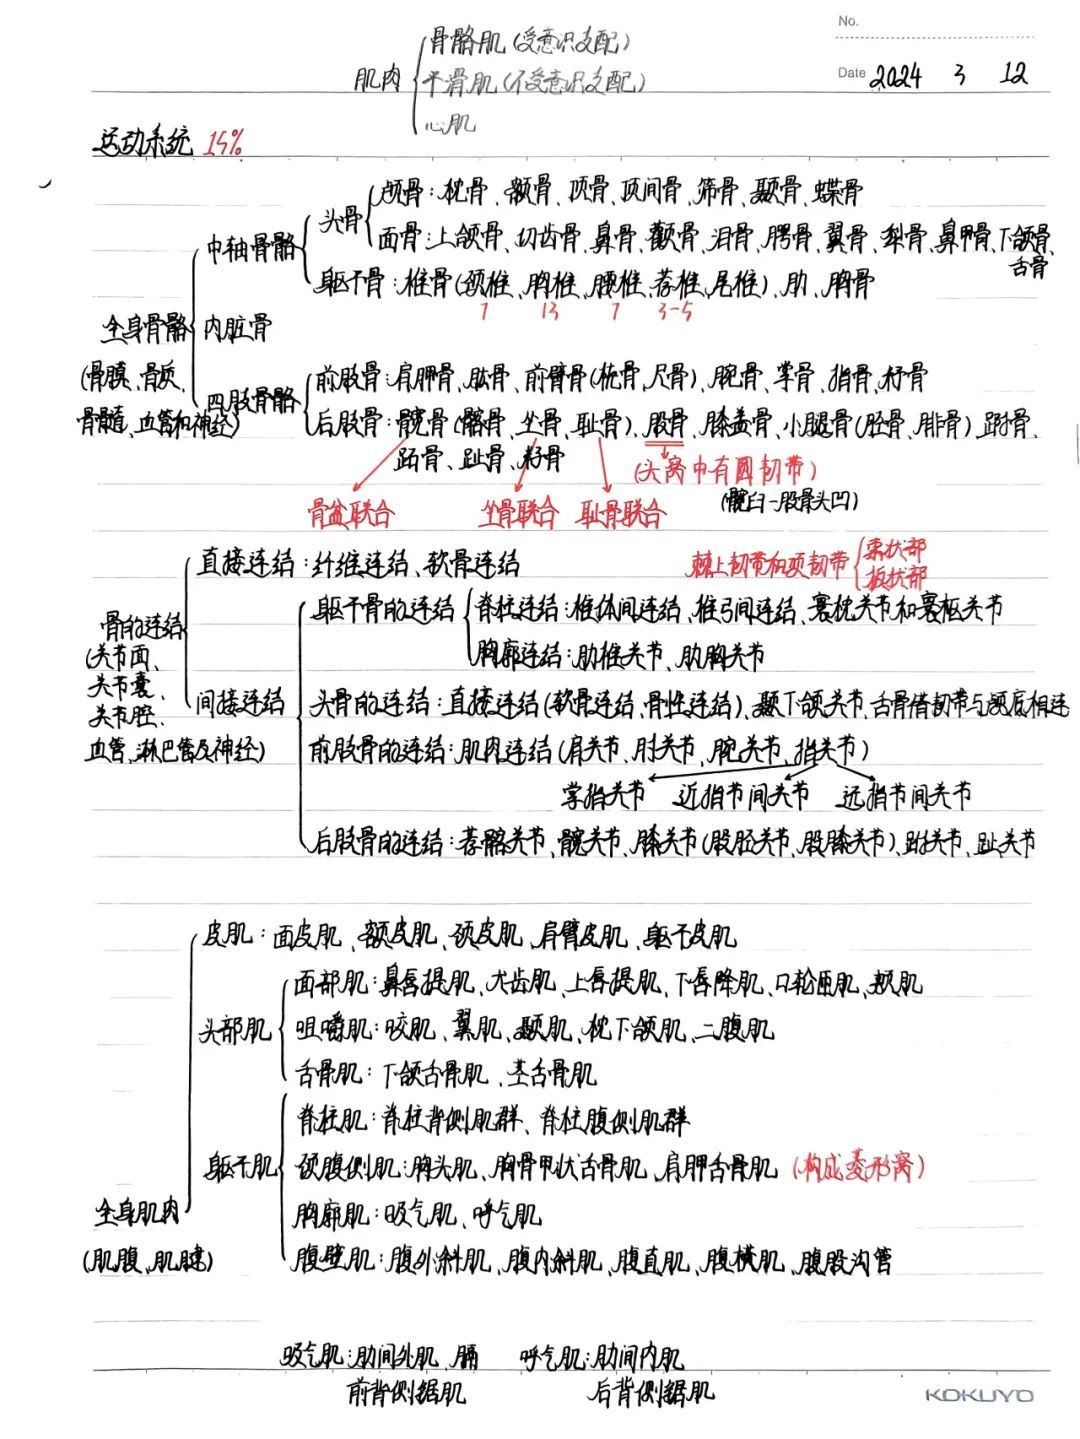 No.
骨骼肌(受意识支配)
Date 2024 3 12
肌肉
平滑肌(不受意识支配)
心肌
运动系统 15%
颅骨:枕骨、额骨、顶骨、顶间骨、筛骨、颞骨、蝶骨
头骨
面骨:上颌骨、切齿骨、鼻骨、颧骨、泪骨、腭骨、翼骨、犁骨、鼻甲骨、下颌骨、
舌骨
中轴骨骼
躯干骨:椎骨(颈椎、胸椎、腰椎、荐椎、尾椎)、肋、胸骨
7 13 7 3-5
全身骨骼
内脏骨
(骨膜、骨质、
骨髓、血管和神经)
四肢骨骼
前肢骨:肩胛骨、肱骨、前臂骨(桡骨、尺骨)、腕骨、掌骨、指骨、籽骨
后肢骨:髋骨(髂骨、坐骨、耻骨)、股骨、膝盖骨、小腿骨(胫骨、腓骨)、跗骨、
跖骨、趾骨、籽骨
(头窝中有圆韧带)
(髋臼-股骨头凹)
骨盆联合 坐骨联合 耻骨联合
直接连结:纤维连结、软骨连结
棘上韧带和项韧带
索状部
板状部
骨的连结
(关节面、
关节囊、
关节腔、
血管、淋巴管及神经)
间接连结
躯干骨的连结
脊柱连结:椎体间连结、椎弓间连结、寰枕关节和寰枢关节
胸廓连结:肋椎关节、肋胸关节
头骨的连结:直接连结(软骨连结、骨性连结)、颞下颌关节、舌骨借韧带与颅底相连
前肢骨的连结:肌肉连结(肩关节、肘关节、腕关节、指关节)
掌指关节 近指节间关节 远指节间关节
后肢骨的连结:荐髂关节、髋关节、膝关节(股胫关节、股膝关节)、跗关节、趾关节
皮肌:面皮肌、额皮肌、颈皮肌、肩臂皮肌、躯干皮肌
头部肌
面部肌:鼻唇提肌、犬齿肌、上唇提肌、下唇降肌、口轮匝肌、颊肌
咀嚼肌:咬肌、翼肌、颞肌、枕下颌肌、二腹肌
舌骨肌:下颌舌骨肌、茎舌骨肌
躯干肌
脊柱肌:脊柱背侧肌群、脊柱腹侧肌群
颈腹侧肌:胸头肌、胸骨甲状舌骨肌、肩胛舌骨肌 (构成菱形窝)
胸廓肌:吸气肌、呼气肌
腹壁肌:腹外斜肌、腹内斜肌、腹直肌、腹横肌、腹股沟管
全身肌肉
(肌腹、肌腱)
吸气肌:肋间外肌、膈 呼气肌:肋间内肌
前背侧锯肌 后背侧锯肌
KOKUYO